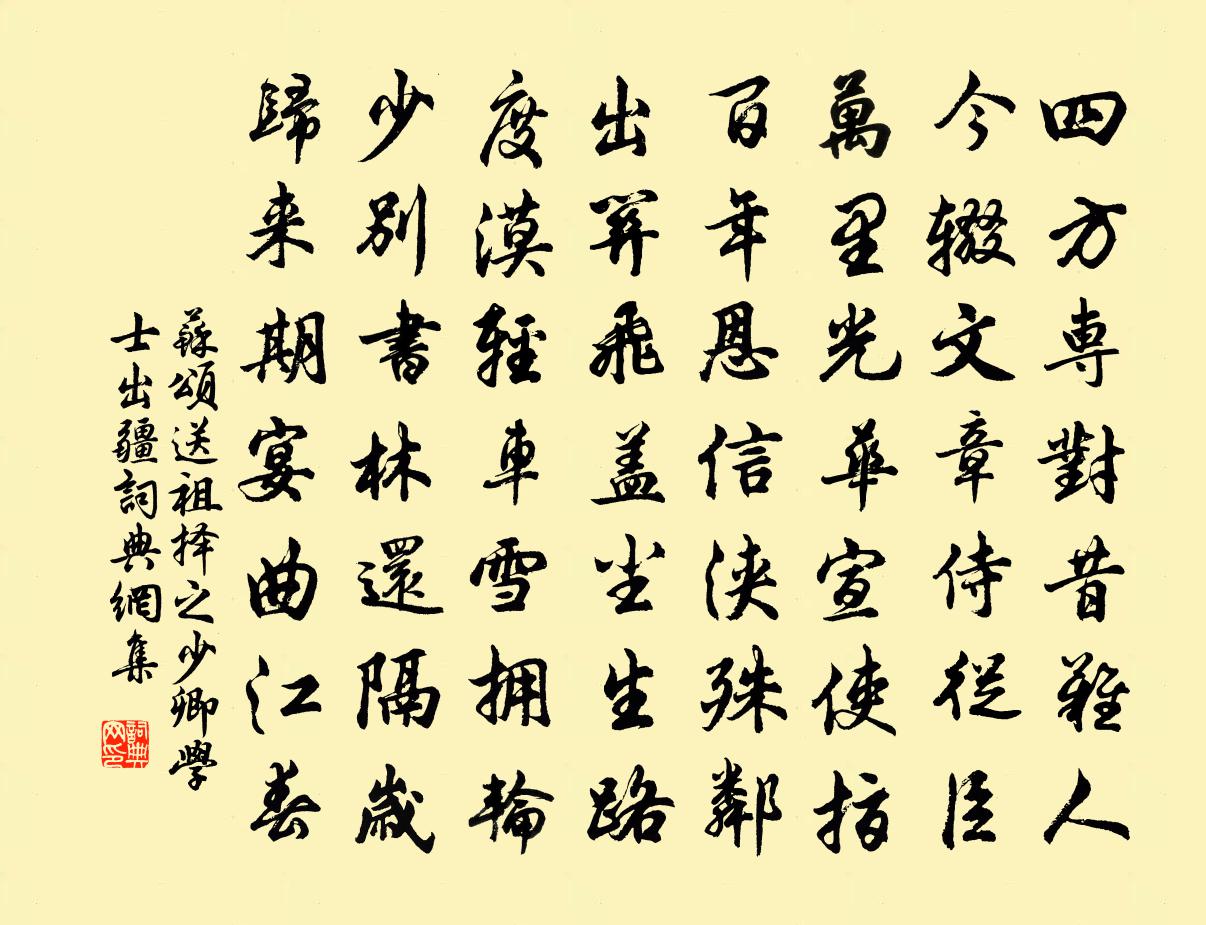 四方専對昔難人
今輟文章侍從臣
萬里光華宣使指
百年恩信浹殊鄰
出關飛蓋尘生路
度漠輕車雪拥輪
少別書林還隔歲
歸来期宴曲江春
蘇頌送祖择之少卿學
士出疆詞典網集
詞典網印